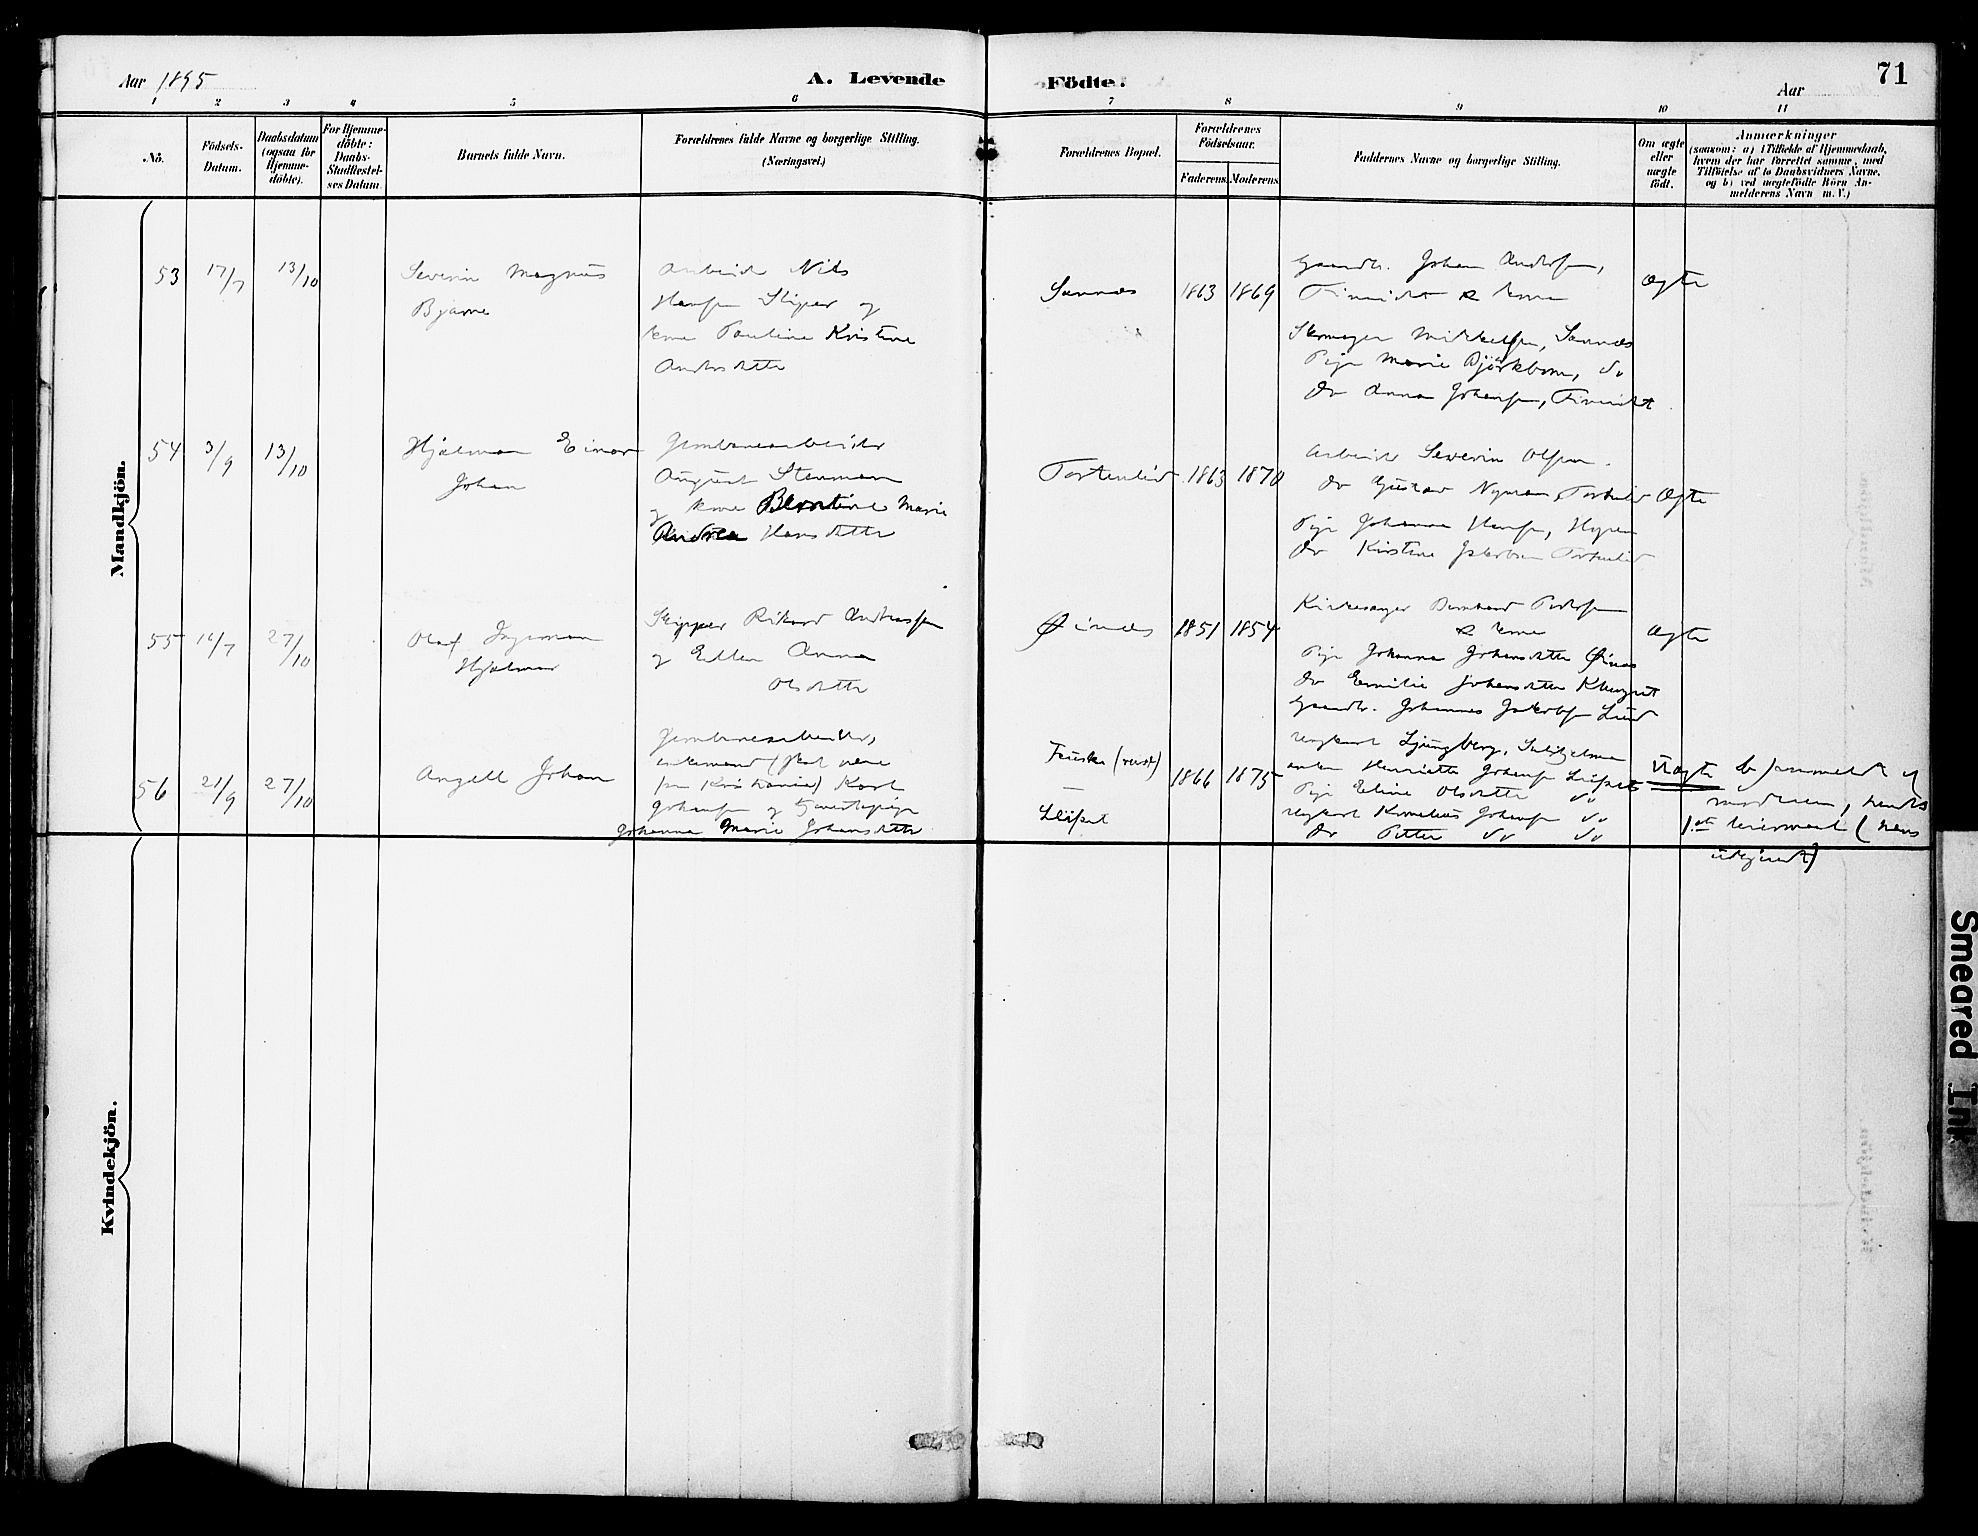 Aar 1895
A. Levende
Födte.
71
Aar
1 2 3 4 5 6 7 8 9 10 11
No.
Födsels-
Datum.
Daabsdatum
(ogsaa for
Hjemme-
döbte).
For Hjemme-
döbte:
Daabs-
Stadfæstel-
ses Datum.
Barnets fulde Navn.
Forældrenes fulde Navne og borgerlige Stilling.
(Næringsvei.)
Forældrenes Bopæl.
Forældrenes
Födselsaar.
Faderens.
Moderens.
Faddernes Navne og borgerlige Stilling.
Om ægte
eller
uægte
födt.
Anmærkninger
(saasom: a) i Tilfælde af Hjemmedaab,
hvem der har forrettet samme, med
Tilföielse af to Daabsvidners Navne.
og b) ved uægtefödte Börn An-
melderens Navn m. V.)
Mandkjön.
53
17/7
13/10
Severin Magnus
Bjarne
Arbeider Nils
Hansen og
kone Pauline Kristine
Andersdatter
Sannæs
1863
1869
Gaardbr. Johan Andersen,
& kone
Mikkelsen, Sannæs
Pige Marie Björkbom, do
do Anna Johansen,
Ægte
54
3/9
13/10
Hjalmar Einar
Johan
Jernbanearbeider
August Stenman
og kone Berntine Marie
Andrea Hansdatter
Torkenlid
1863
1870
Arbeider Severin Olsen
do Gustav Nyman, Torkenlid
Pige Johanna Hansen,
do Kirstine Jakobsen Torkenlid
Ægte
55
27/10
Olaf Ingeman
Hjalmar
Skipper Rikard Andreassen
og Ellen Anna
Olsdatter
Øinæs
1851
1854
Kirkesanger Bernhard Pedersen
& kone
Pige Johanna Johansdatter Øinæs
do Emilie Johansdatter Klungset
Gaardbr. Johannes Jakobsen Lund
Ægte
56
21/9
27/10
Angell Johan
Jernbanearbeider,
enkemand (skal være
fra Kristiania) Karl
Johansen og tjenestepige
Johanna Marie Johansdatter
Fauske (reist)
–
Leifset
1866
1875
Ungkarl Ljungberg, Sulitjelma
enke Henriette Johansen Leifset
Pige Eline Olsdatter do
ungkarl Kornelius Johansen do
do Petter do do
Uægte
b) anmeldt af
moderen, hendes
1ste leiermaal (hans
ubekjendt)
Kvindekjön.
Smeared Ink